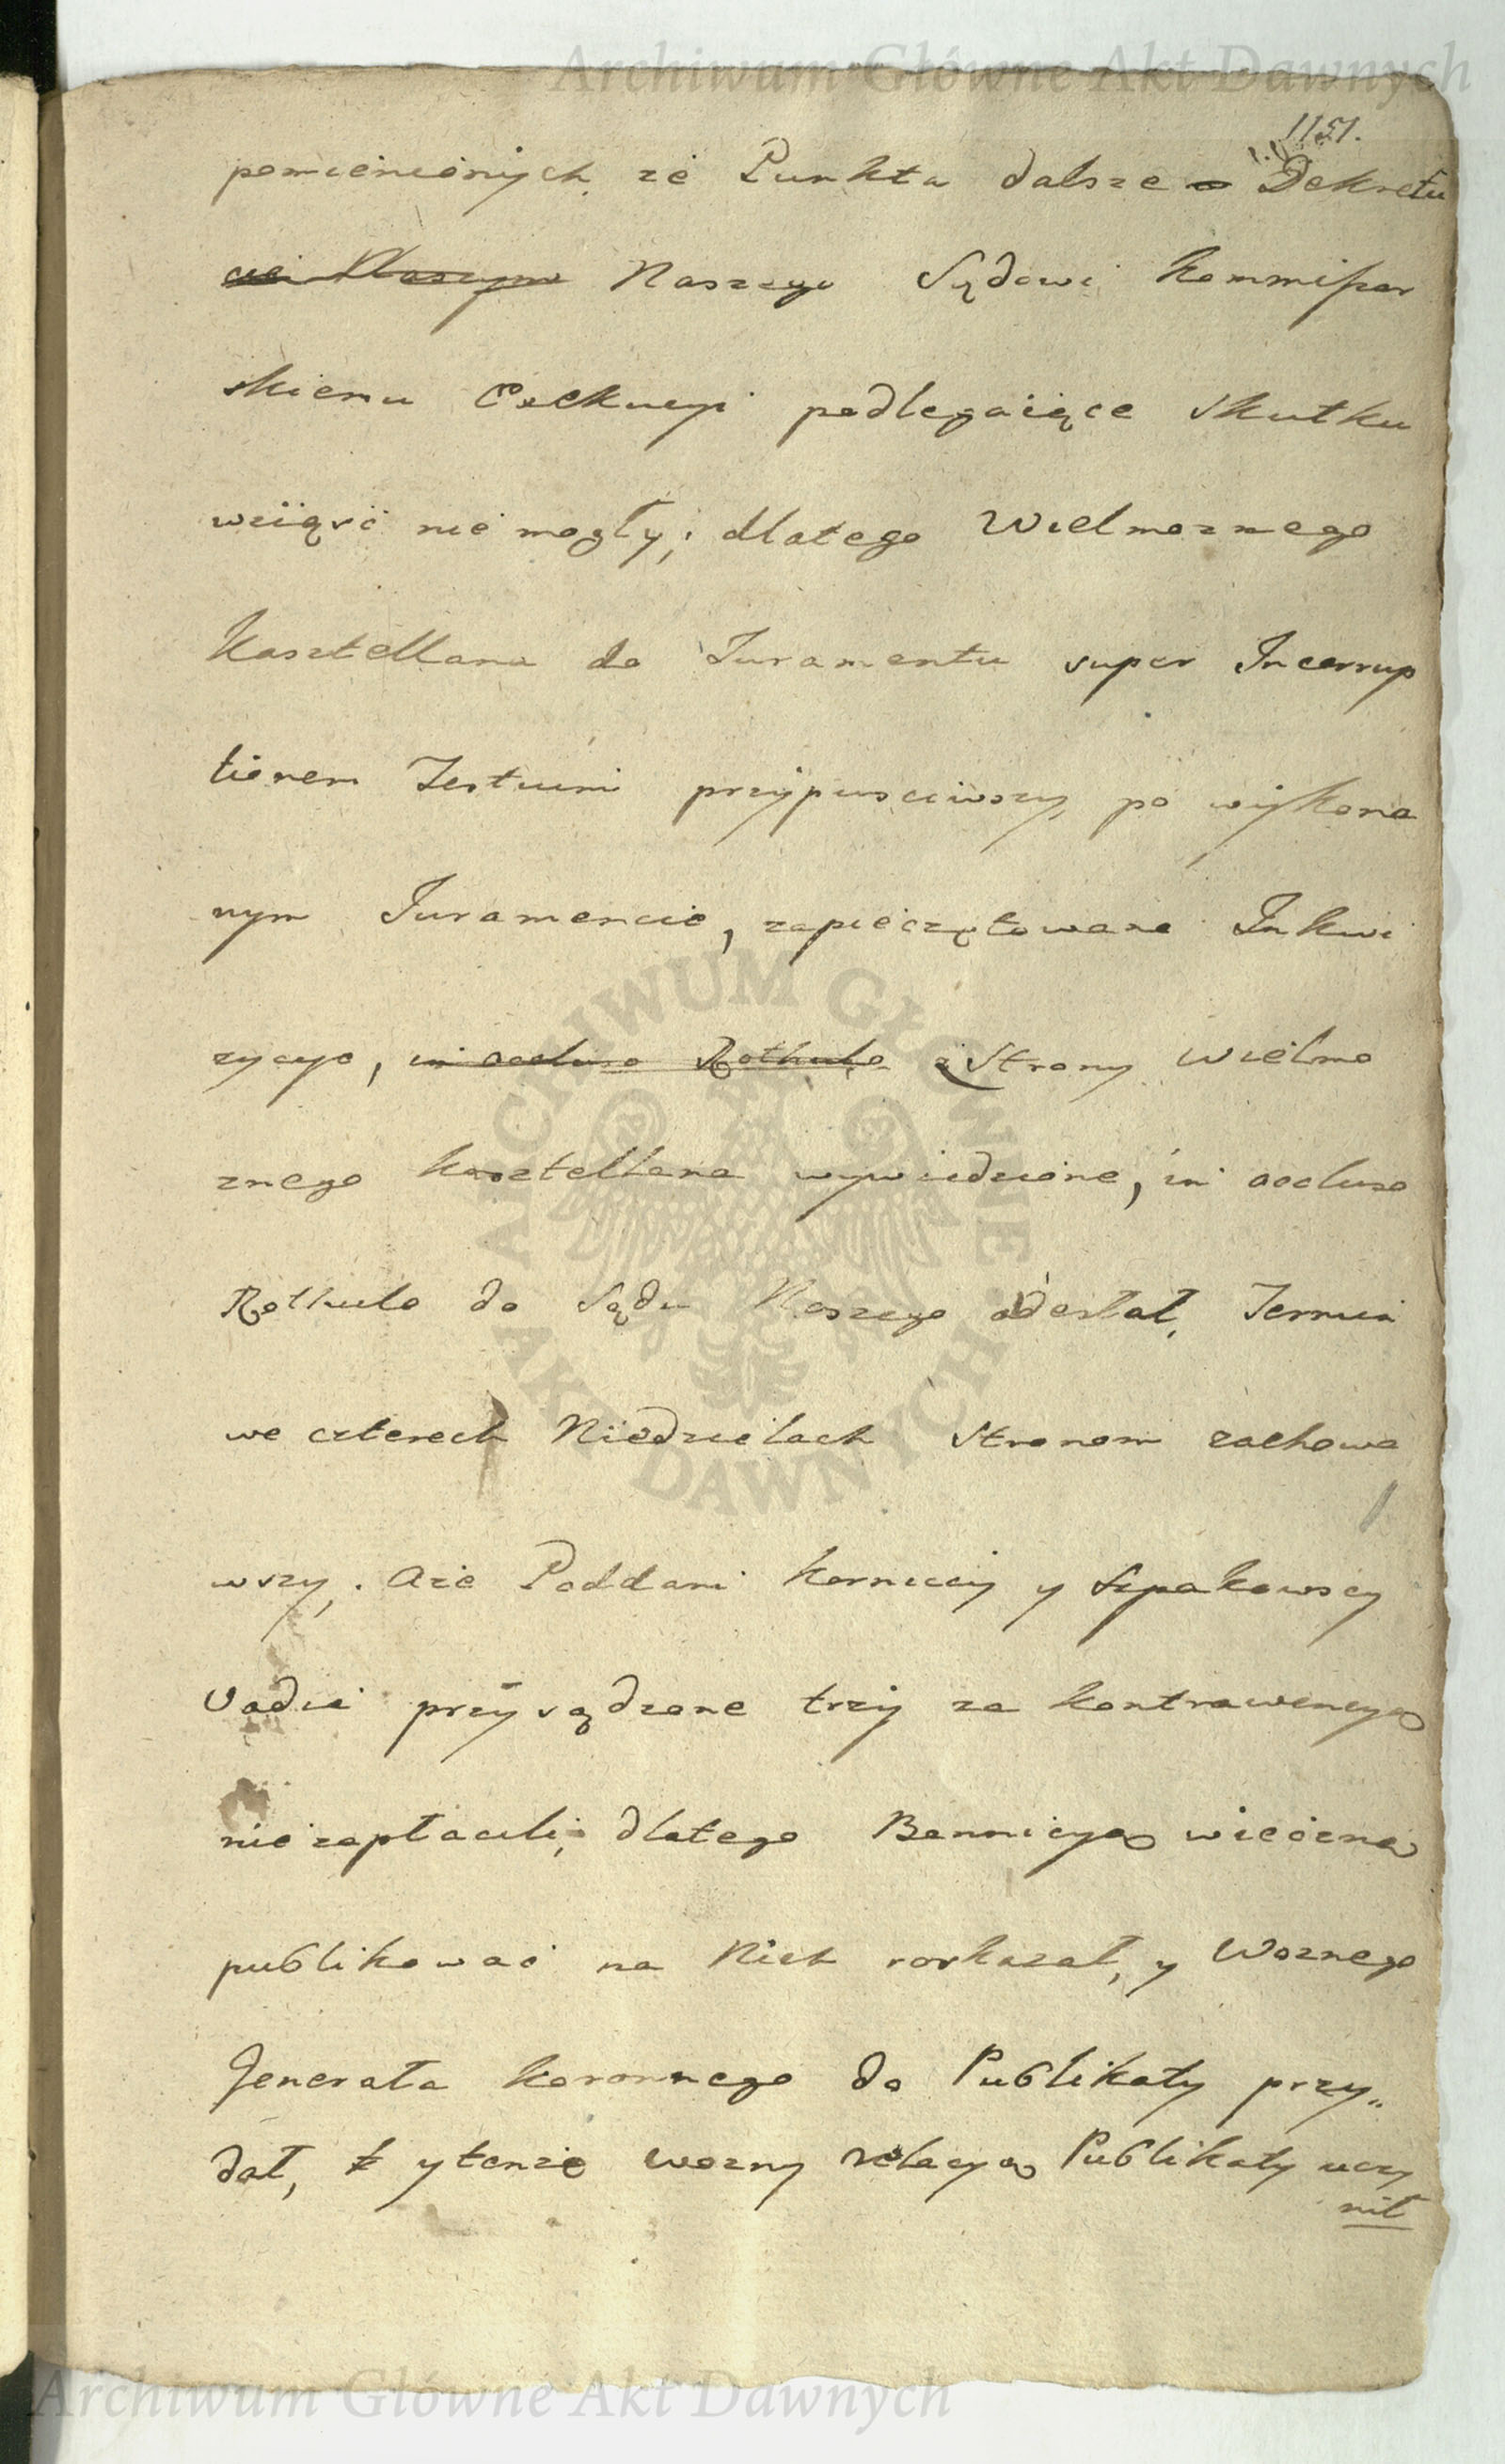 Archiwum Główne Akt Dawnych
1151.
pomienionych że Punkta dalsze Dekretu
Naszego Sądowi Kommissar
skiemu Exekucyi podlegaiące skutku
wziąść nie mogły; dlatego Wielmoznego
Kasztellana do Juramentu super Incorrup
tionem Testium przypusciwszy, po wykona
nym Juramencie, zapieczętowane Inkwi
zycye, in occluso Rothulo z Strony Wielmo
znego Kasztellana wywiedzione, in occluso
Rothulo do Sądu Naszego odesłał, Termin
we czterech Niedzielach Stronom zachowa
wszy. Aże Poddani Korniccy y Szpakowscy
Vadia przysądzone trzy za kontrawencyą
nie zapłacili; dlatego Bannicyą wieczną
publikować na Nich roskazał, y Woznego
Jenerała Koronnego do Publikaty przy„
dał, y tenże Wozny relacyą Publikaty uczy
nił
ARCHIWUM GŁÓWNE AKT DAWNYCH
Archiwum Główne Akt Dawnych